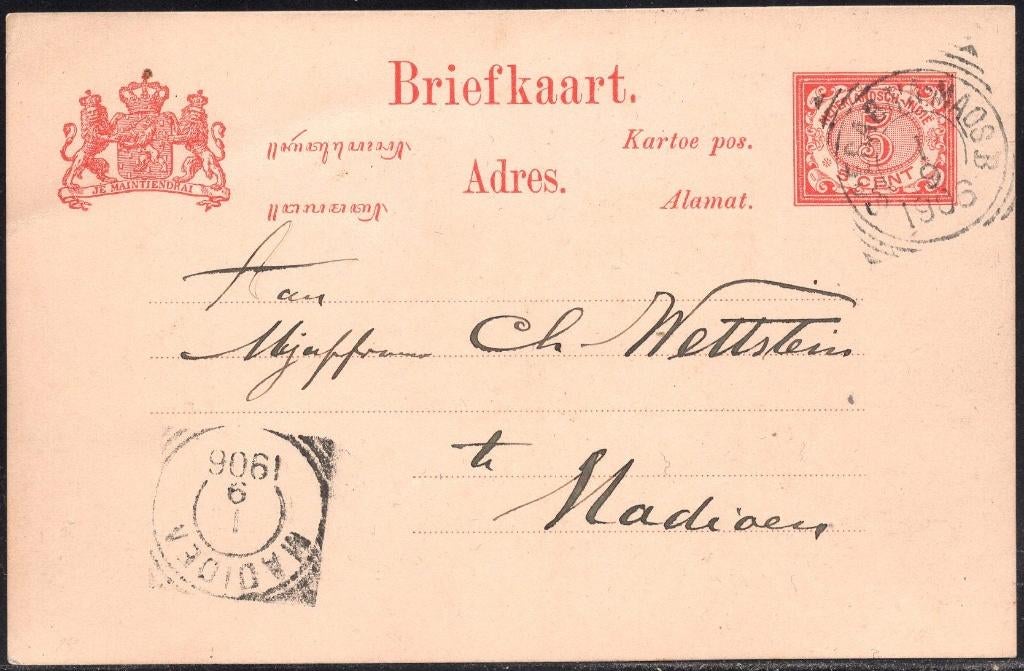 Briefkaart.
Kartoe pos.
Adres.
Alamat.
JE MAINTIENDRAI
NEDERLANDSCH-INDIË
5
CENT
1906
Aan
Mejuffrouw Ch Wettstein
te
Madioen
1906
9
1
MADIOEN